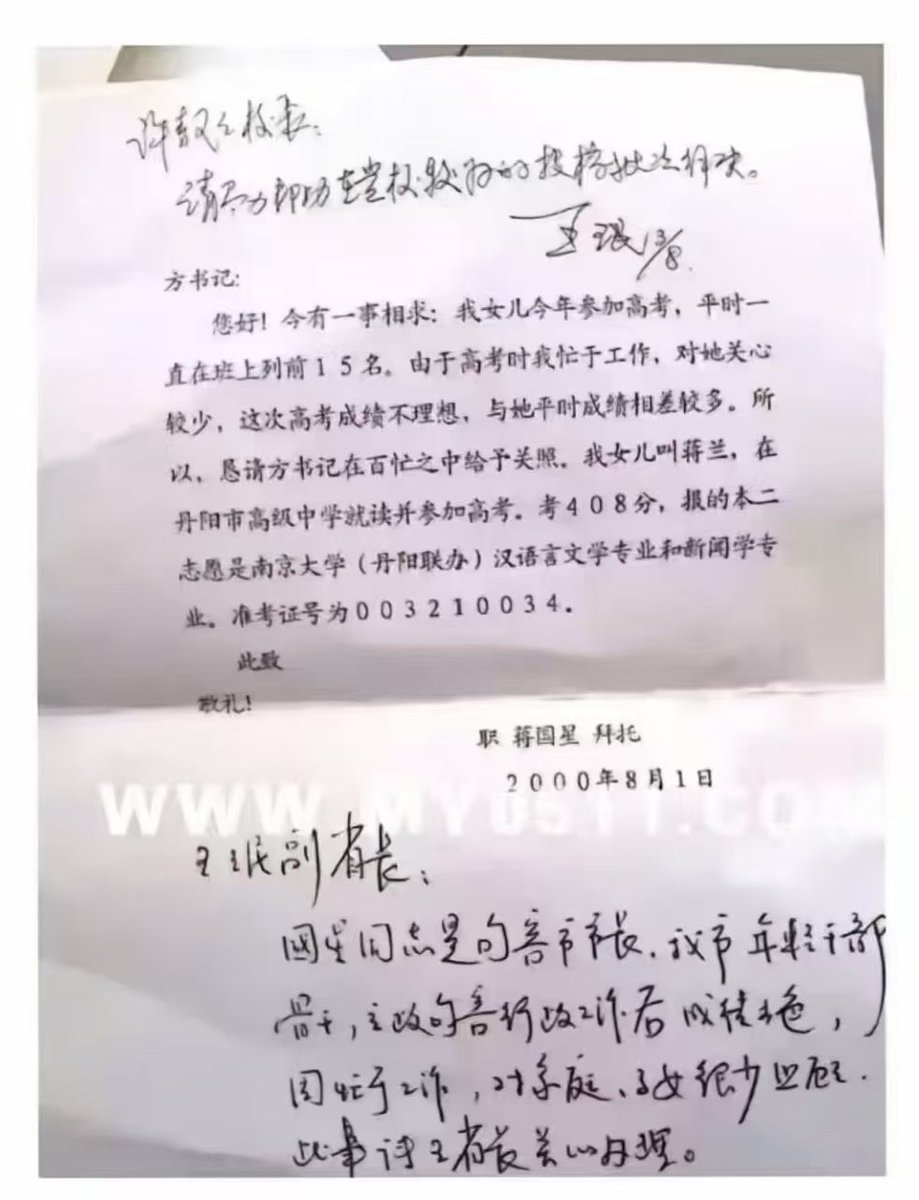 校长：
请尽力帮助在当校投档批次解决。
王珉 13/8
方书记:
您好！今有一事相求：我女儿今年参加高考，平时一
直在班上列前15名。由于高考时我忙于工作，对她关心
较少，这次高考成绩不理想，与她平时成绩相差较多。所
以，恳请方书记在百忙之中给予关照。我女儿叫蒋兰，在
丹阳市高级中学就读并参加高考。考408分，报的本二
志愿是南京大学（丹阳联办）汉语言文学专业和新闻学专
业。准考证号为003210034。
此致
敬礼！
职 蒋国星 拜托
2000年8月1日
WWW.MY0511.COM
王珉副省长：
國星同志是句容市市长，我市年轻干部
骨干，主政句容行政工作后成绩出色，
因忙于工作，对家庭、子女很少照顾.
此事请王省长关心办理。